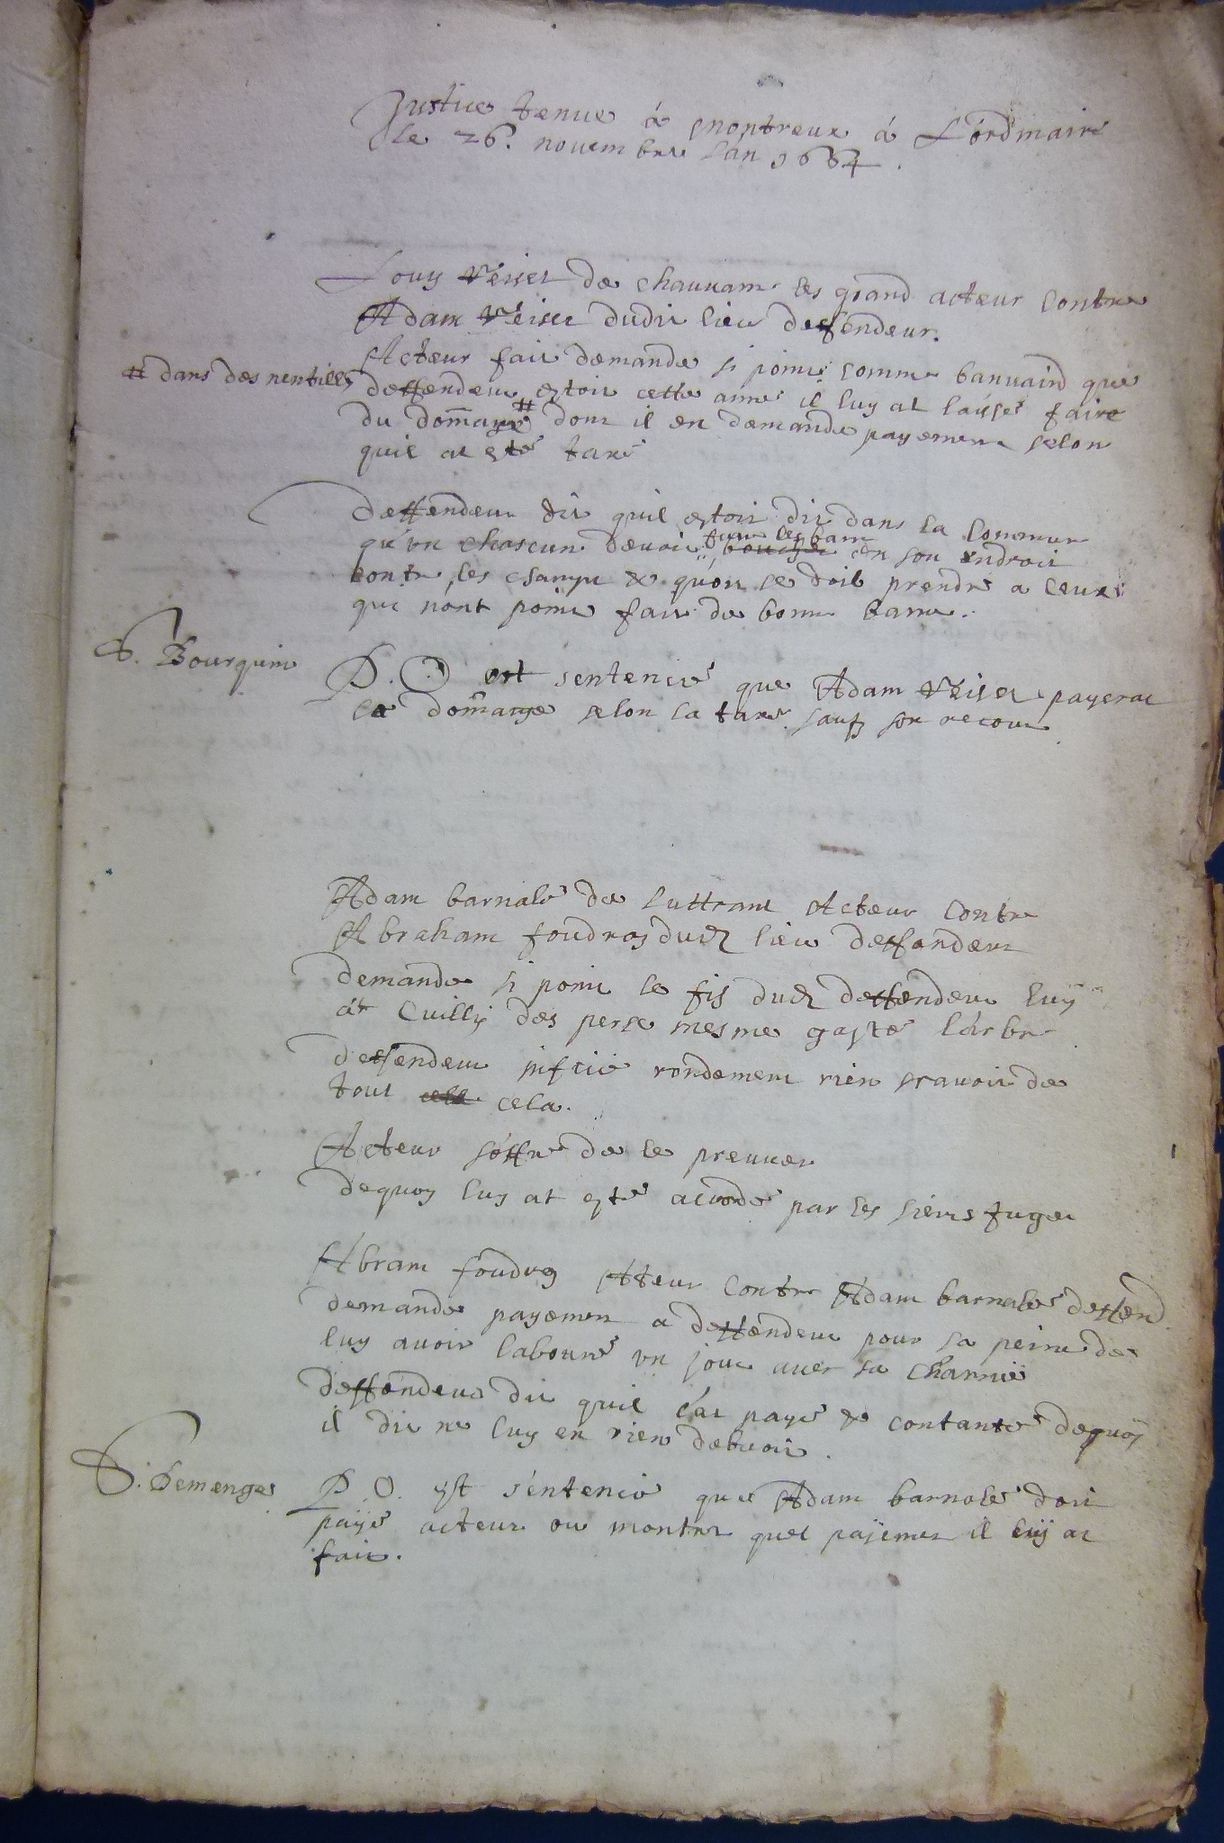 Justice tenue à montreux à L'ordinaire
le 26. nouembre l'an 1664.
Louy Veiset de chauuanne les grand acteur contre
Adam Veiset dudit lieu deffendeur.
Acteur fait demande si point comme banuaird que
# dans des nentilles
deffendeur estoit cette année il luy at laissé faire
du dommage # dont il en demande payement selon
quil at esté taxé
deffendeur dit quil estoit dit dans la commune
qu'vn chascun deuoit faire les bam en son endroit
contre les champs & qu'on se doit prendre a ceux
qui n'ont point fait de bonne barre.
S. Bourquin
P. O est sentencié que Adam Veiset payerat
le dommage selon la taxe sauf son recour
Adam barnabé de Luttrant Acteur contre
Abraham foudroy dud. lieu deffendeur
demande si point le fis dud. deffendeur luy
at Cuilly des perse mesme gasté l'arbre
deffendeur inficié rondement rien scauoir de
tout cela cela.
Acteur s'offre de le preuuer
dequoy luy at esté acordé par les sieurs Juges
Abram foudroy Atteur contre Adam barnabé deffend.
demande payement a deffendeur pour sa peine de
luy auoir labouré vn jour auec sa Charrue
deffendeur dit quil l'at payé & contanté dequoy
il dit ne luy en rien debuoir.
S. Demenge
P. O. est sentencié que Adam barnabé doit
payé acteur ou montrer quel payement il luy at
fait.